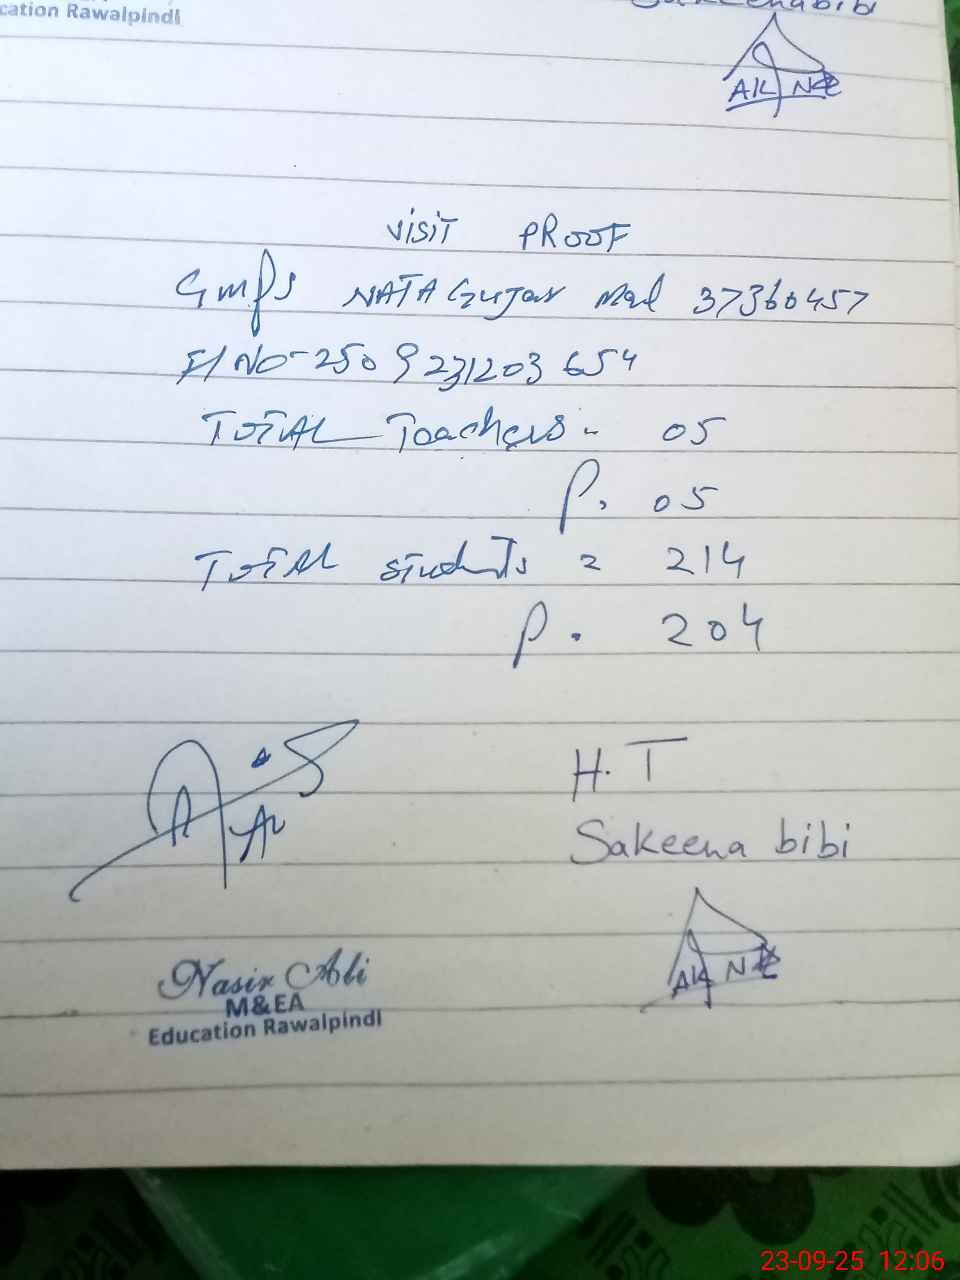 cation Rawalpindi
Sakeena bibi
AK NZ
VISIT PROOF
GMPS NATA Gujar Mal 37360457
F/NO-2509231203654
TOTAL Teachers - 05
P. 05
TOTAL students = 214
P. 204
H.T
Sakeena bibi
AK NZ
Nasir Ali
M&EA
Education Rawalpindi
23-09-25 12:06